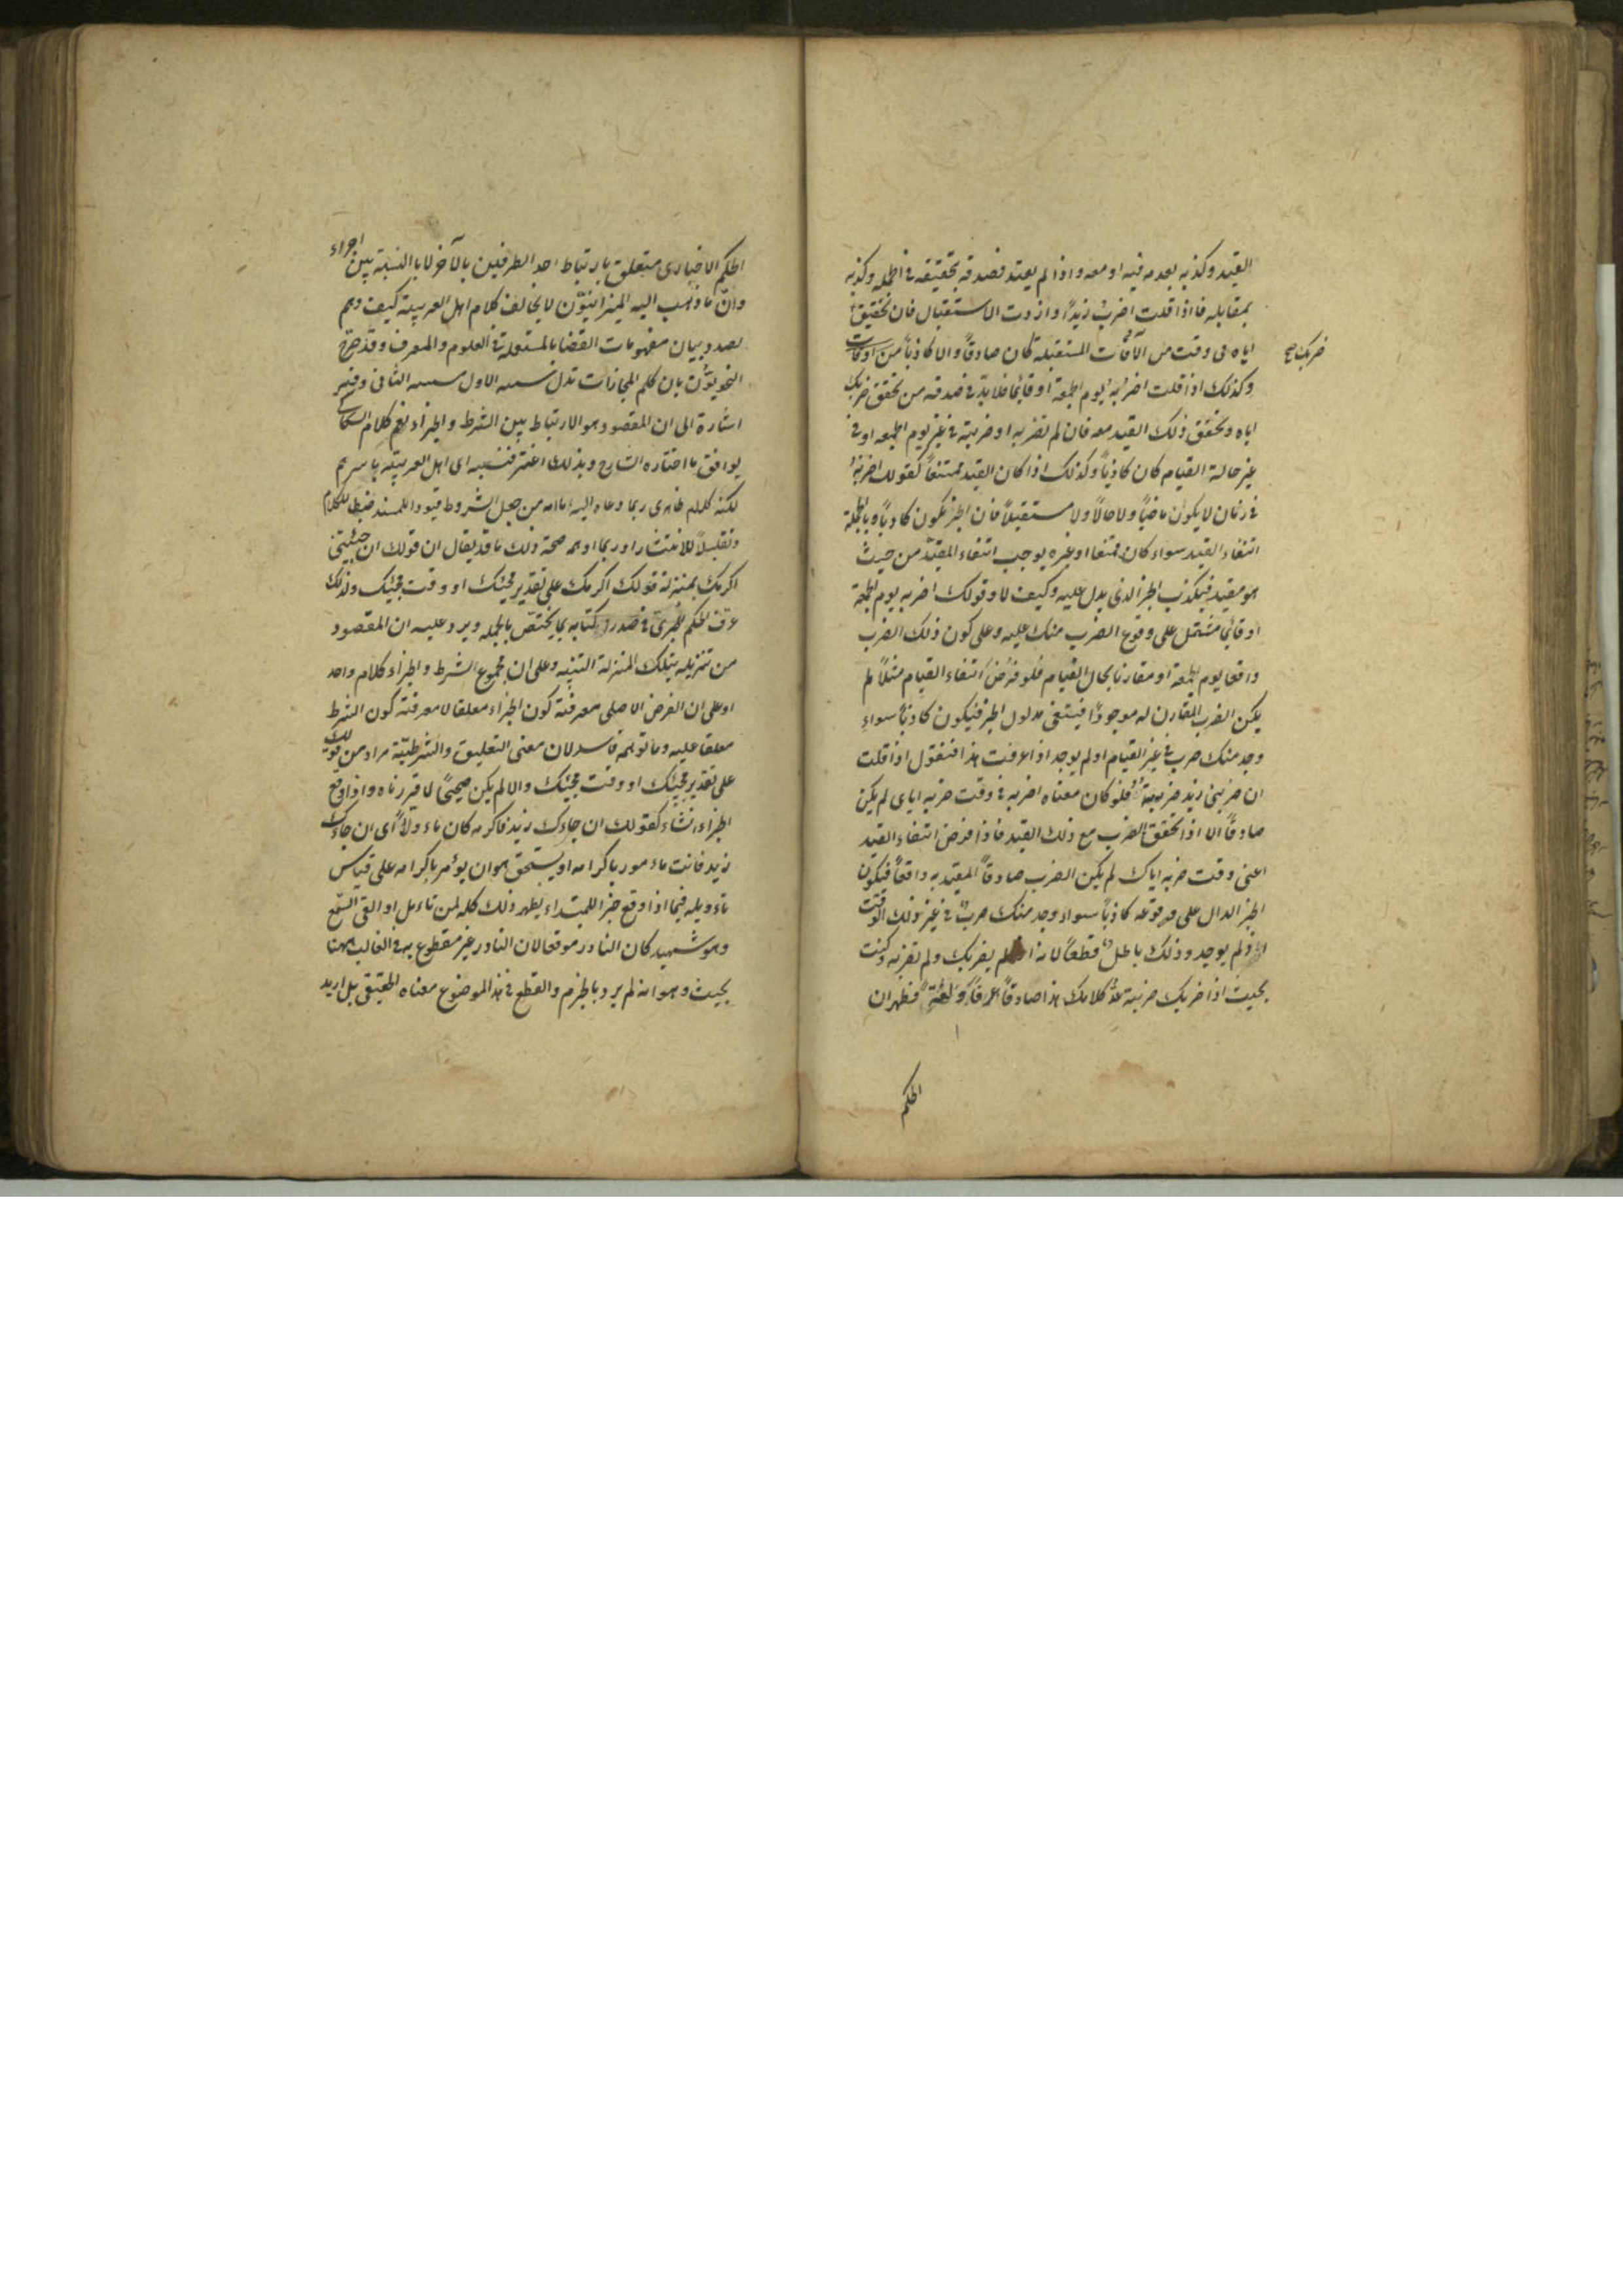 القيد وكذبه بعدمه فيه او معه واذا لم يقيد فصدقه تحقيقه في الجملة وكذبه
بمقابله فاذا قلت اضربُ زيداً واردت الاستقبال فان تحقق
ضربك صح
اياه في وقت من الاوقات المستقبلة كان صادقاً والا كاذباً
وكذلك اذا قلت اضربه يوم الجمعة او قائما فلا بدّ في صدقه من تحقق ضربك
اياه وتحقق ذلك القيد معه فان لم تضربه او ضربته في غير يوم الجمعة او في
غير حالة القيام كان كاذباً وكذلك اذا كان القيد ممتنعاً كقولك اضربهُ
في زمان لا يكون ماضياً ولا حالاً ولا مستقبلاً فان الخبر يكون كاذباً وبالجملة
انتفاء القيد سواء كان ممتنعا او غيره يوجب انتفاء المقيّد من حيث
هو مقيد فيكذب الخبر الذي يدل عليه وكيف لا وقولك اضربه يوم الجمعة
او قائما مشتمل على وقوع الضرب منك عليه وعلى كون ذلك الضرب
واقعا يوم الجمعة او مقارنا بحال القيام فلو فرُض انتفاء القيام مثلاً لم
يكن الضرب المقارن له موجوداً فينتفى مدلول الخبر فيكون كاذباً سواء
وجد منك ضرب في غير القيام او لم يوجد اذا عرفت هذا فنقول اذا قلت
ان ضربنى زيد ضربته فلو كان معناه اضربه في وقت ضربه اياى لم يكن
صادقاً الا اذا تحقق الضرب مع ذلك القيد فاذا فرض انتفاء القيد
اعنى وقت ضربه اياك لم يكن الضرب المقيد به واقعاً فيكون
الخبر الدال على وقوعه كاذباً سواء وجد منك ضربٌ في غير ذلك الوقت
او لم يوجد وذلك باطل قطعاً لانه اذا لم يضربك ولم تضربه وكنت
بحيث اذا ضربك ضربته عدُّ كلامك هذا صادقاً عرفاً ولغةً فظهر ان
الحكم
الحكم الاخبارى متعلق بارتباط احد الطرفين بالآخر لا بالنسبة بين اجزاء
وانّ ما ذهب اليه الميزانيّون لا يخالف كلام اهل العربية كيف وهم
بصدد بيان مفهومات القضايا المستعملة في العلوم والعرف وقد صرّح
النحويّون بان كلم المجازات تدل سببية الاول مسببية الثانى وفيه
اشارة الى ان المقصود هو الارتباط بين الشرط والجزاء نعم كلام السكاكى
يوافق ما اختاره الشارح وبذلك اغتر فنسبه الى اهل العربية باسرهم
لكنه كلام ظاهرى ربما دعاه اليه ما رامه من جعل الشروط قيودا للمسند ضبطا للكلام
وتقليلاً للانتشار وربما اوهم صحة ذلك ما قد يقال ان قولك ان جئتنى
اكرمك بمنزلة قولك اكرمك على تقدير مجيئك او وقت مجيئك ولذلك
عرف الحكم الخبرى في صدر كتابه بما يختصّ بالجمله ويرد عليه ان المقصود
من تنزيله بتلك المنزلة التنبيه وعلى ان مجموع الشرط والجزاء كلام واحد
او على ان الغرض الاصلى معرفة كون الجزاء معلقا لا معرفة كون الشرط
معلقا عليه وما توهمه فاسد لان معنى التعليق والشرطيّة مراد من قولك
على تقدير مجيئك او وقت مجيئك والا لم يكن صحيحاً لما قررناه واذا وقع
الجزاء انشاء كقولك ان جاءك زيد فاكرمه كان ماءولاً اى ان جاءك
زيد فانت ماءمور باكرامه او يستحق هو ان يؤمر باكرامه على قياس
تاءويله فيما اذا وقع خبرا للمبتداء يظهر ذلك كله لمن تاءمل او القى السّمع
وهو شهيد كان النادر موقعا لان النادر غير مقطوع به في الغالب ههنا
بحيث وهو انه لم يرد بالجزم والقطع في هذا الموضوع معناه الحقيقى بل اريد